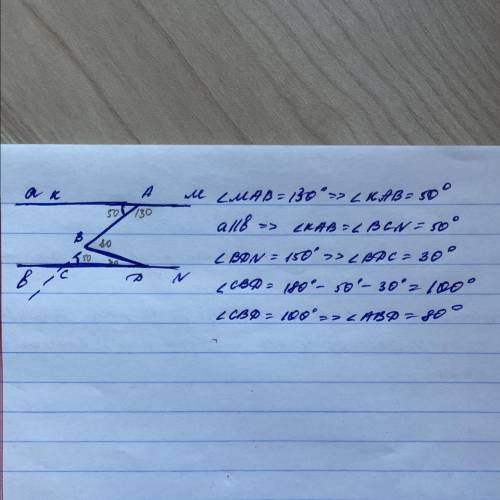 a K A M
50 130
B 80
b C 50 30 D N
∠MAB = 130° => ∠KAB = 50°
a||b => ∠KAB = ∠BCN = 50°
∠BDN = 150° => ∠BDC = 30°
∠CBD = 180° - 50° - 30° = 100°
∠CBD = 100° => ∠ABD = 80°